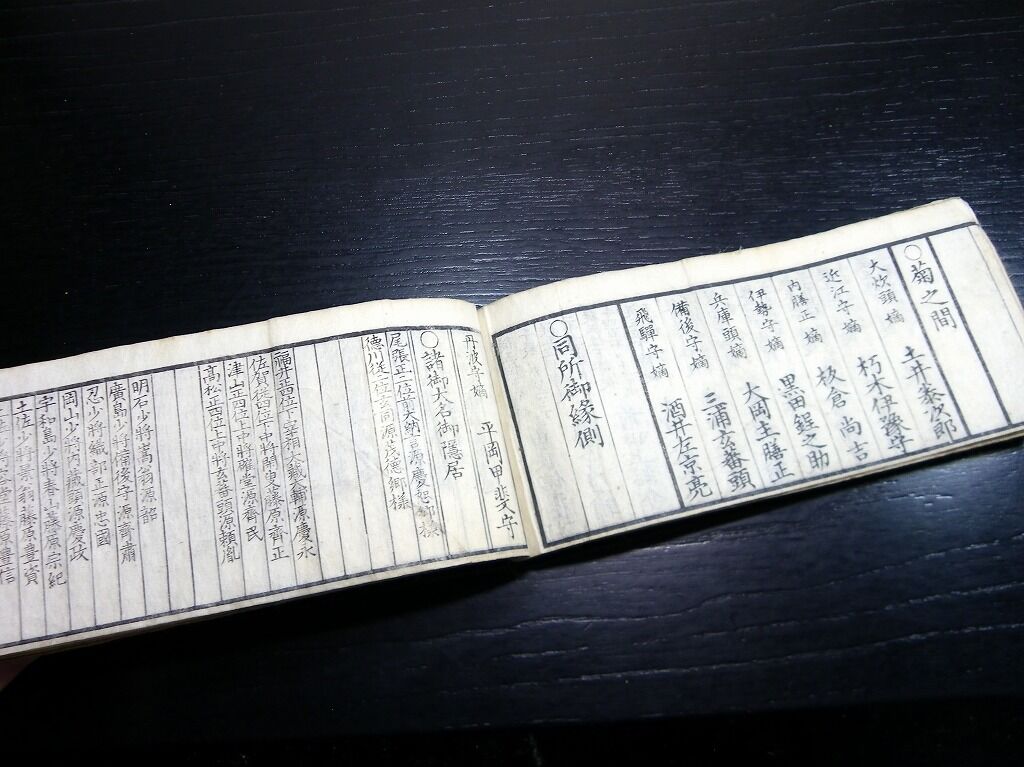 ○菊之間
大炊頭 嫡 土井泰次郎
近江守 嫡 朽木伊豫守
内膳正 嫡 板倉尚吉
伊勢守 嫡 黒田鋥之助
兵庫頭 嫡 大岡主膳正
備後守 嫡 三浦玄蕃頭
飛驒守 嫡 酒井左京亮
○同所御縁側
丹波守 嫡 平岡甲斐守
○諸御大名御隠居
尾張正二位前大納言源慶恕御様
徳川従二位 同源茂徳御様
福井正四位下宰相大蔵大輔源慶永
佐賀従四位下中将閑叟藤原齊正
津山正四位上中将確堂源齊民
高松正四位上中将玄蕃頭源頼胤
明石少将 翁源韶
廣島少将備後守源齊肅
忍少将織部正源忠國
岡山少将内蔵頭源慶政
宇和島少将春山藤原宗紀
土佐少将景翁藤原豊資
堂藤原豊信